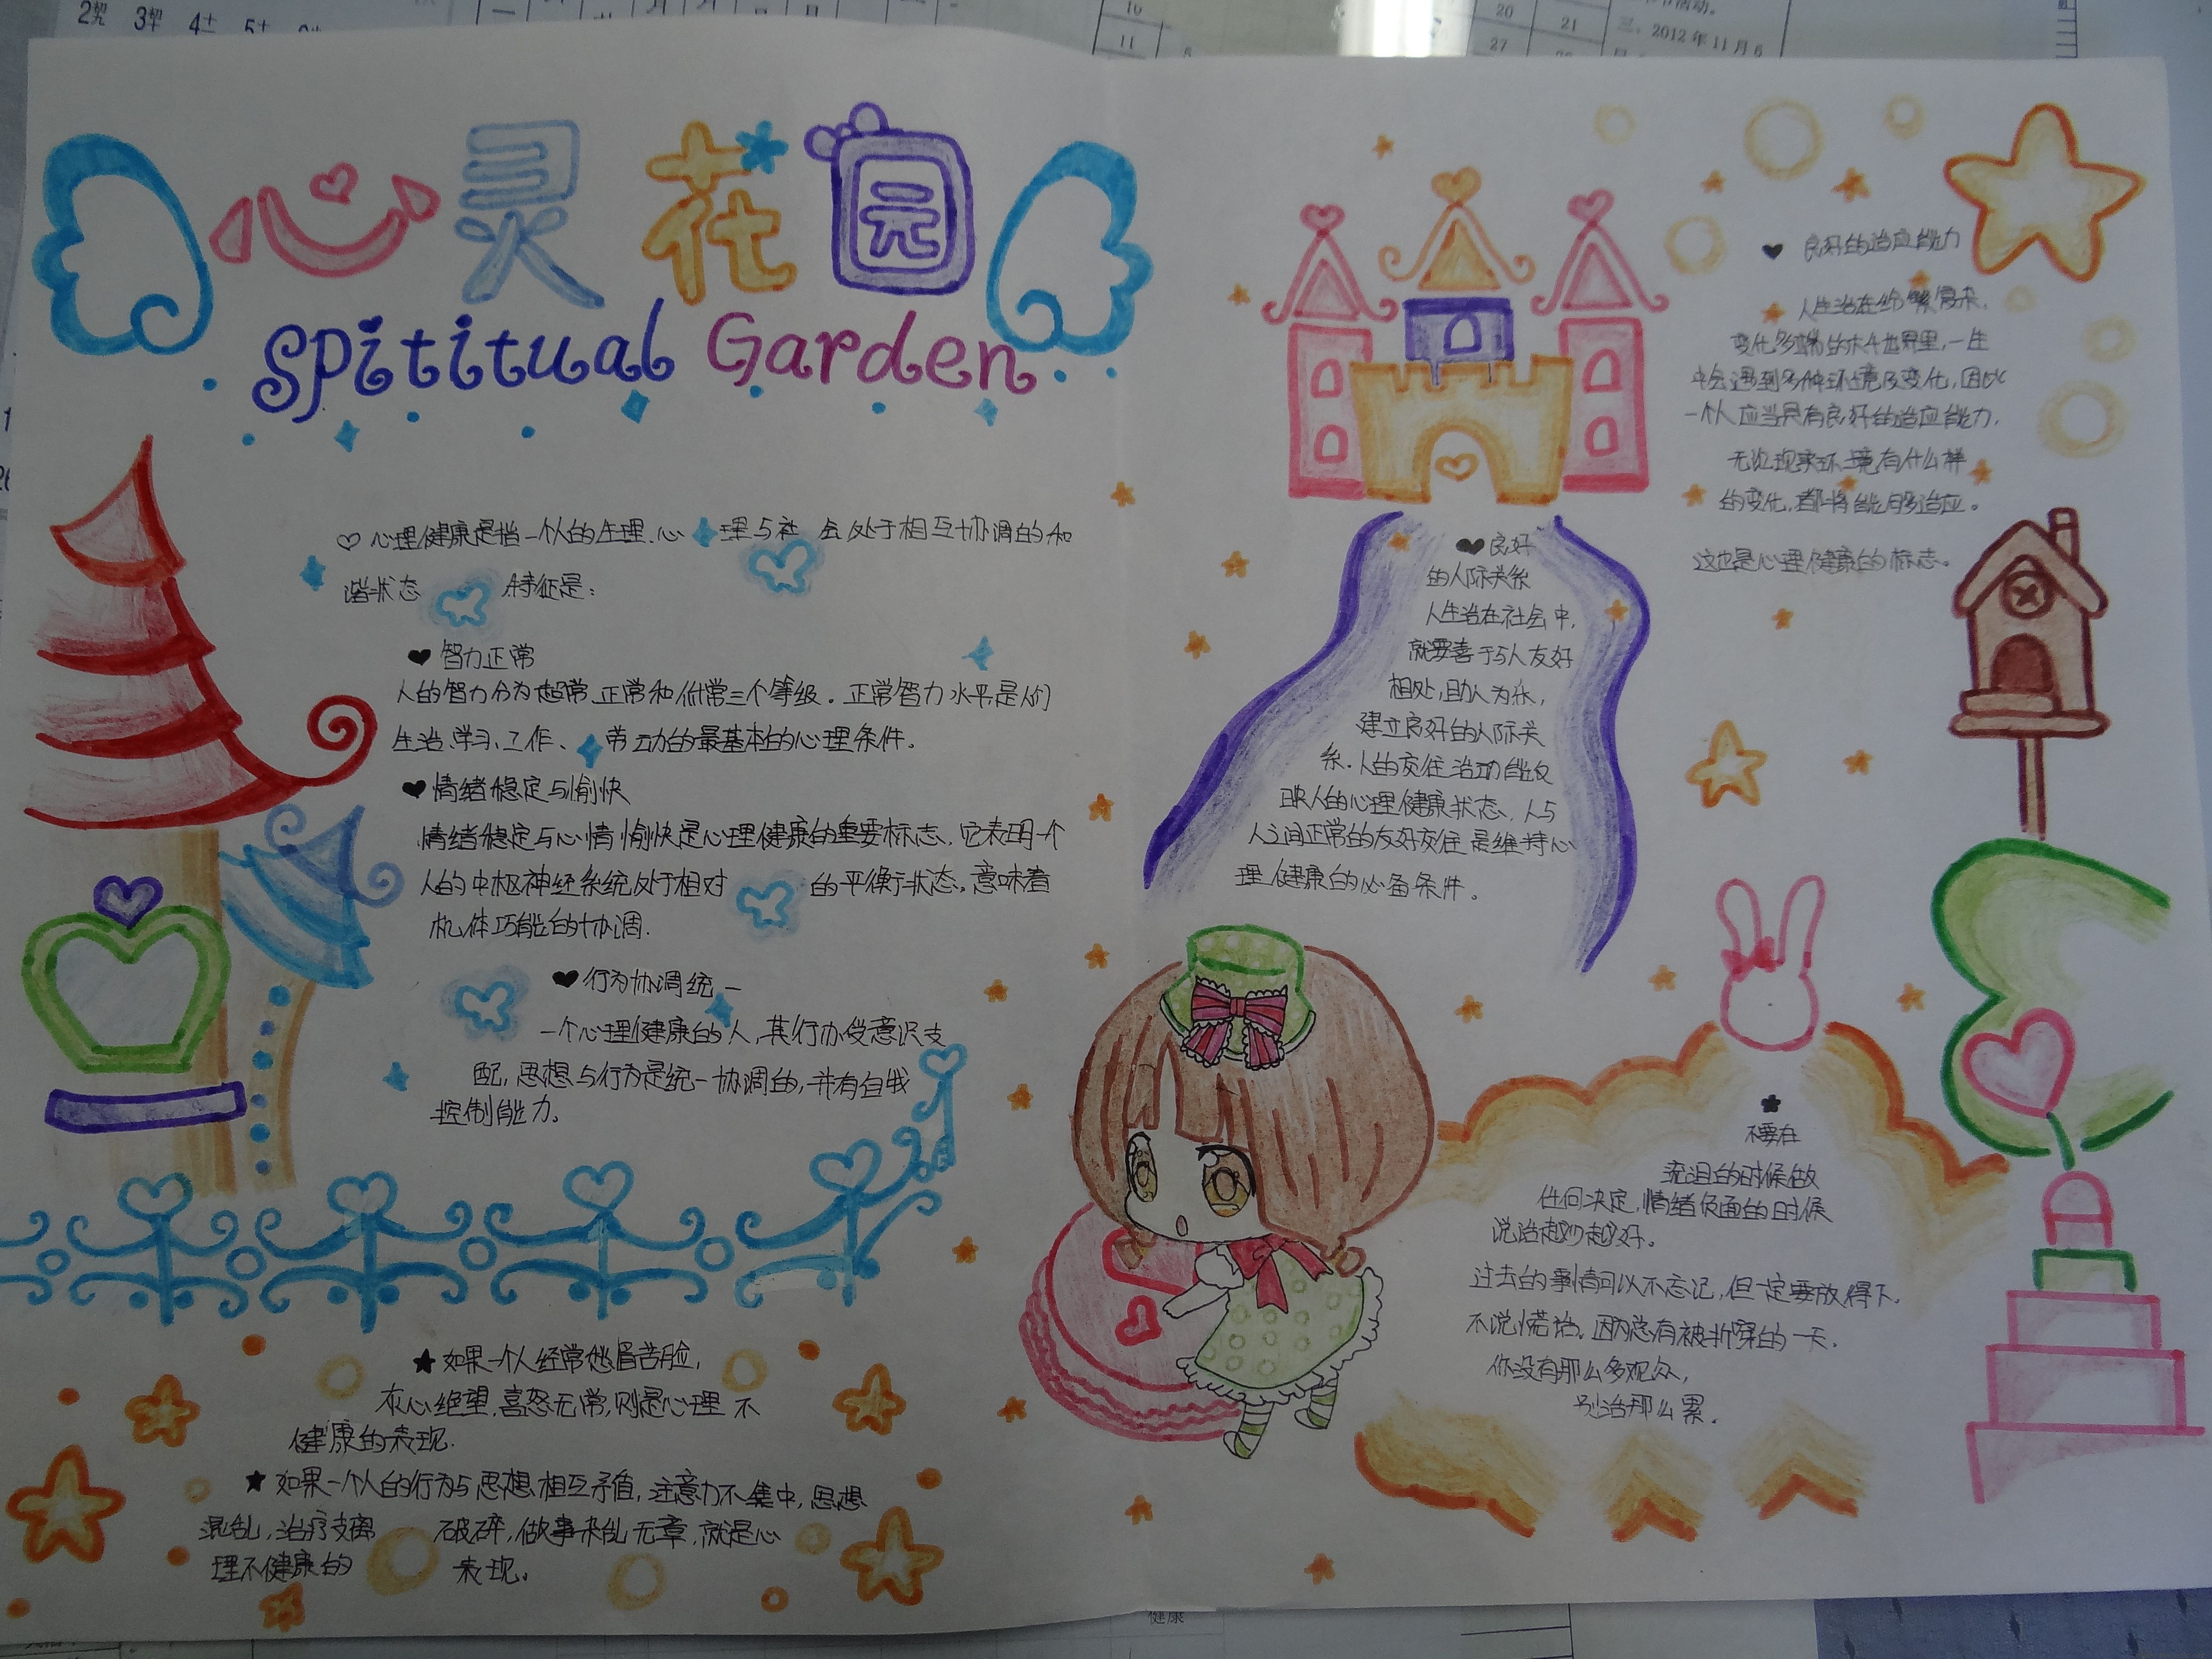 心灵花园
Spititual Garden
心理健康是指一个人的生理、心理与社会处于相互协调的和
谐状态 特征是：
智力正常
人的智力分为超常、正常和低常三个等级。正常智力水平是人们
生活、学习、工作、劳动的最基本的心理条件。
情绪稳定与愉快
情绪稳定与心情愉快是心理健康的重要标志，它表明一个
人的中枢神经系统处于相对的平衡状态。意味着
机体巧能的协调.
行为协调统一
一个心理健康的人，其行为受意识支
配，思想与行为是统一协调的，并有自我
控制能力。
如果一个人经常愁眉苦脸，
灰心绝望，喜怒无常，则是心理不
健康的表现.
如果一个人的行为与思想相互矛盾，注意力不集中，思想
混乱， 破碎，做事杂乱无章，就是心
理不健康的表现。
良好的适应能力
人生活在纷繁复杂、
变化多端的大千世界里，一生
中会遇到多种环境及变化，因此
一个人应当具有良好的适应能力，
无论现实环境有什么样
的变化，都将能够适应。
这也是心理健康的标志。
良好
的人际关系
人生活在社会中，
就要善于与人友好
相处，助人为乐，
建立良好的人际关
系.人的交往活动能反
映人的心理健康状态，人与
人之间正常的友好交往是维持心
理健康的必备条件。
不要在
流泪的时候做
任何决定，情绪负面的时候
说话越少越好。
过去的事情可以不忘记，但一定要放得下.
不说谎话，因为总有被拆穿的一天.
你没有那么多观众，
别活那么累.
2012年11月6
10
11
20
21
27
健康